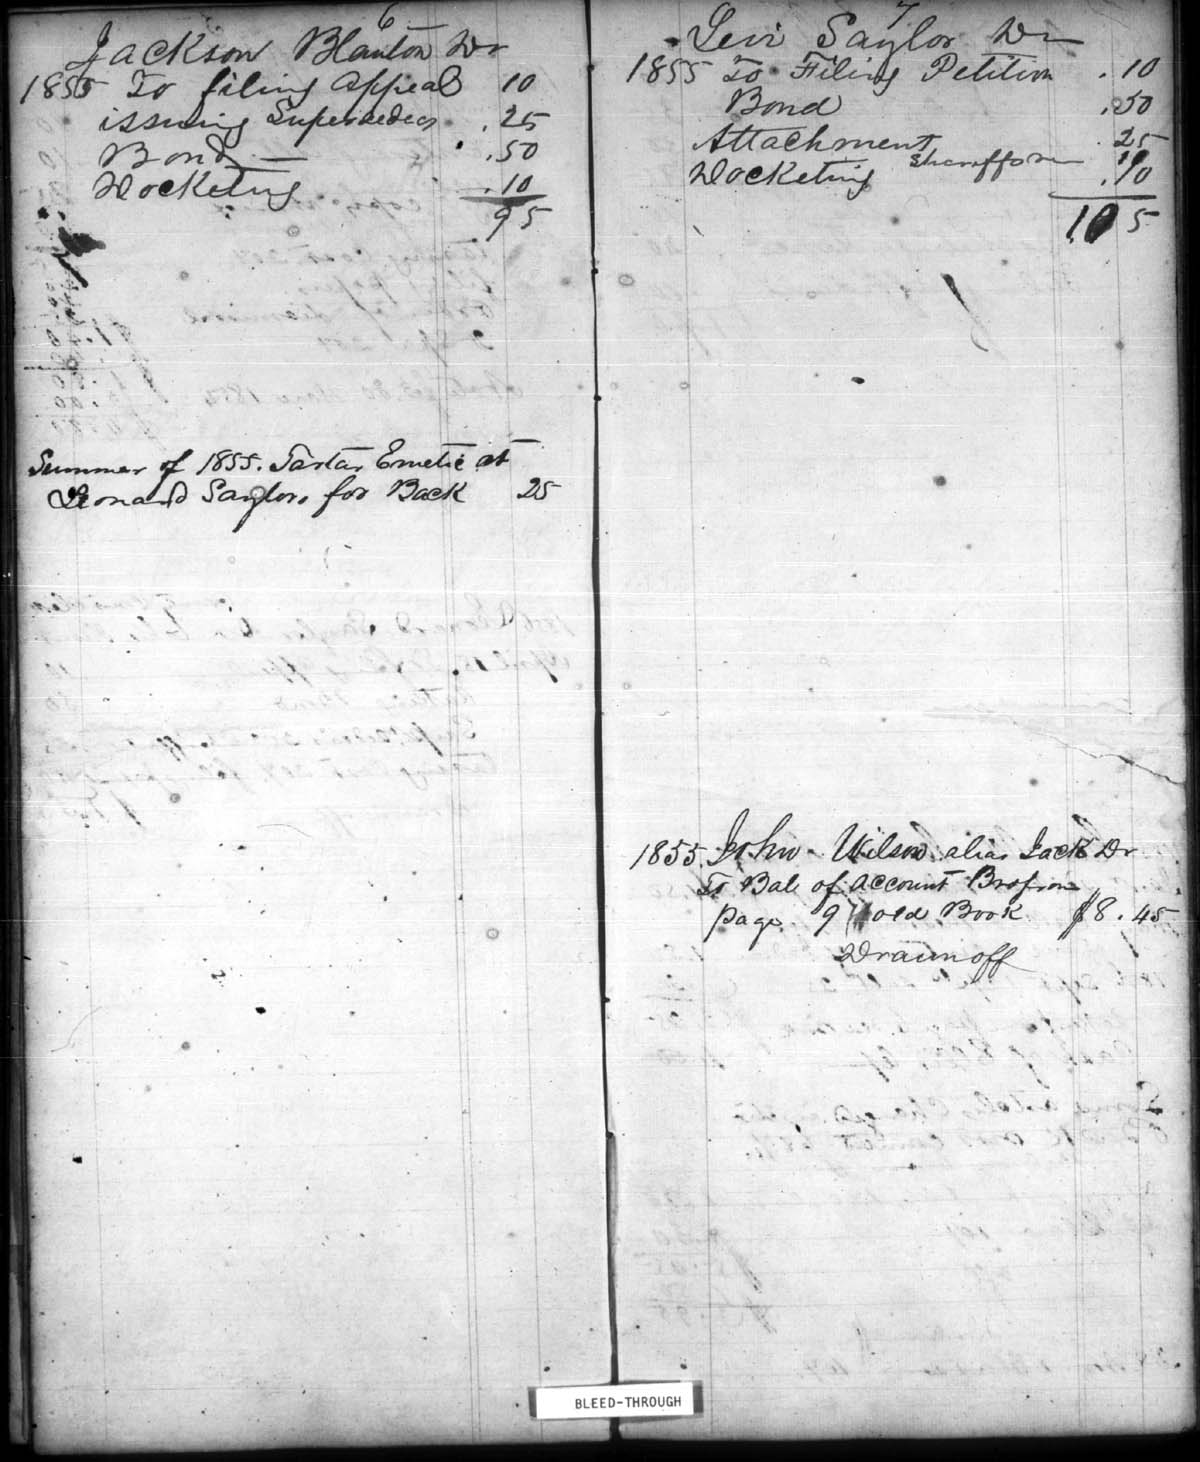 6
Jackson Blanton Dr
1855 To filing appeal 10
issuing Supersedeas .25
Bond .50
Docketing .10
95
Summer of 1855. Tartar Emetic at
Leonard Saylors for Back 25
7
Levi Saylor Dr
1855 To Filing Petition .10
Bond .50
Attachment .25
Docketing .10
1.05
1855. John Wilson alias Jack Dr
To Bal of account Bro from
page 9 old Book $8.45
Drawn off
BLEED-THROUGH